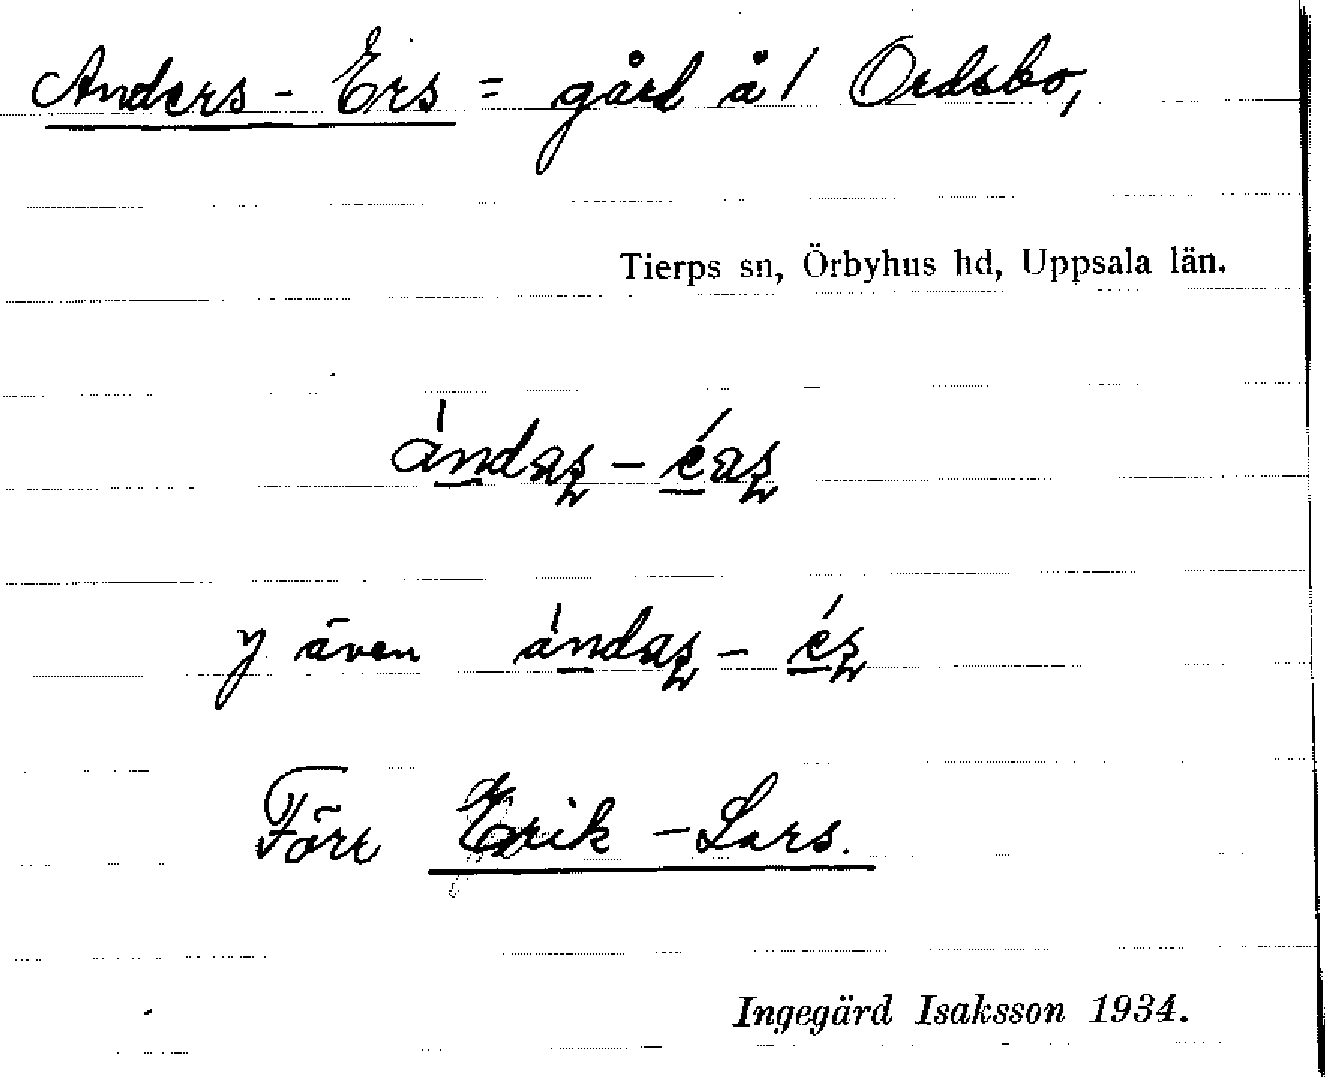 Anders-Ers = gård å 1 Ordsbo,
Tierps sn, Örbyhus hd, Uppsala län.
y även
Förr Erik-Lars.
Ingegärd Isaksson 1934.